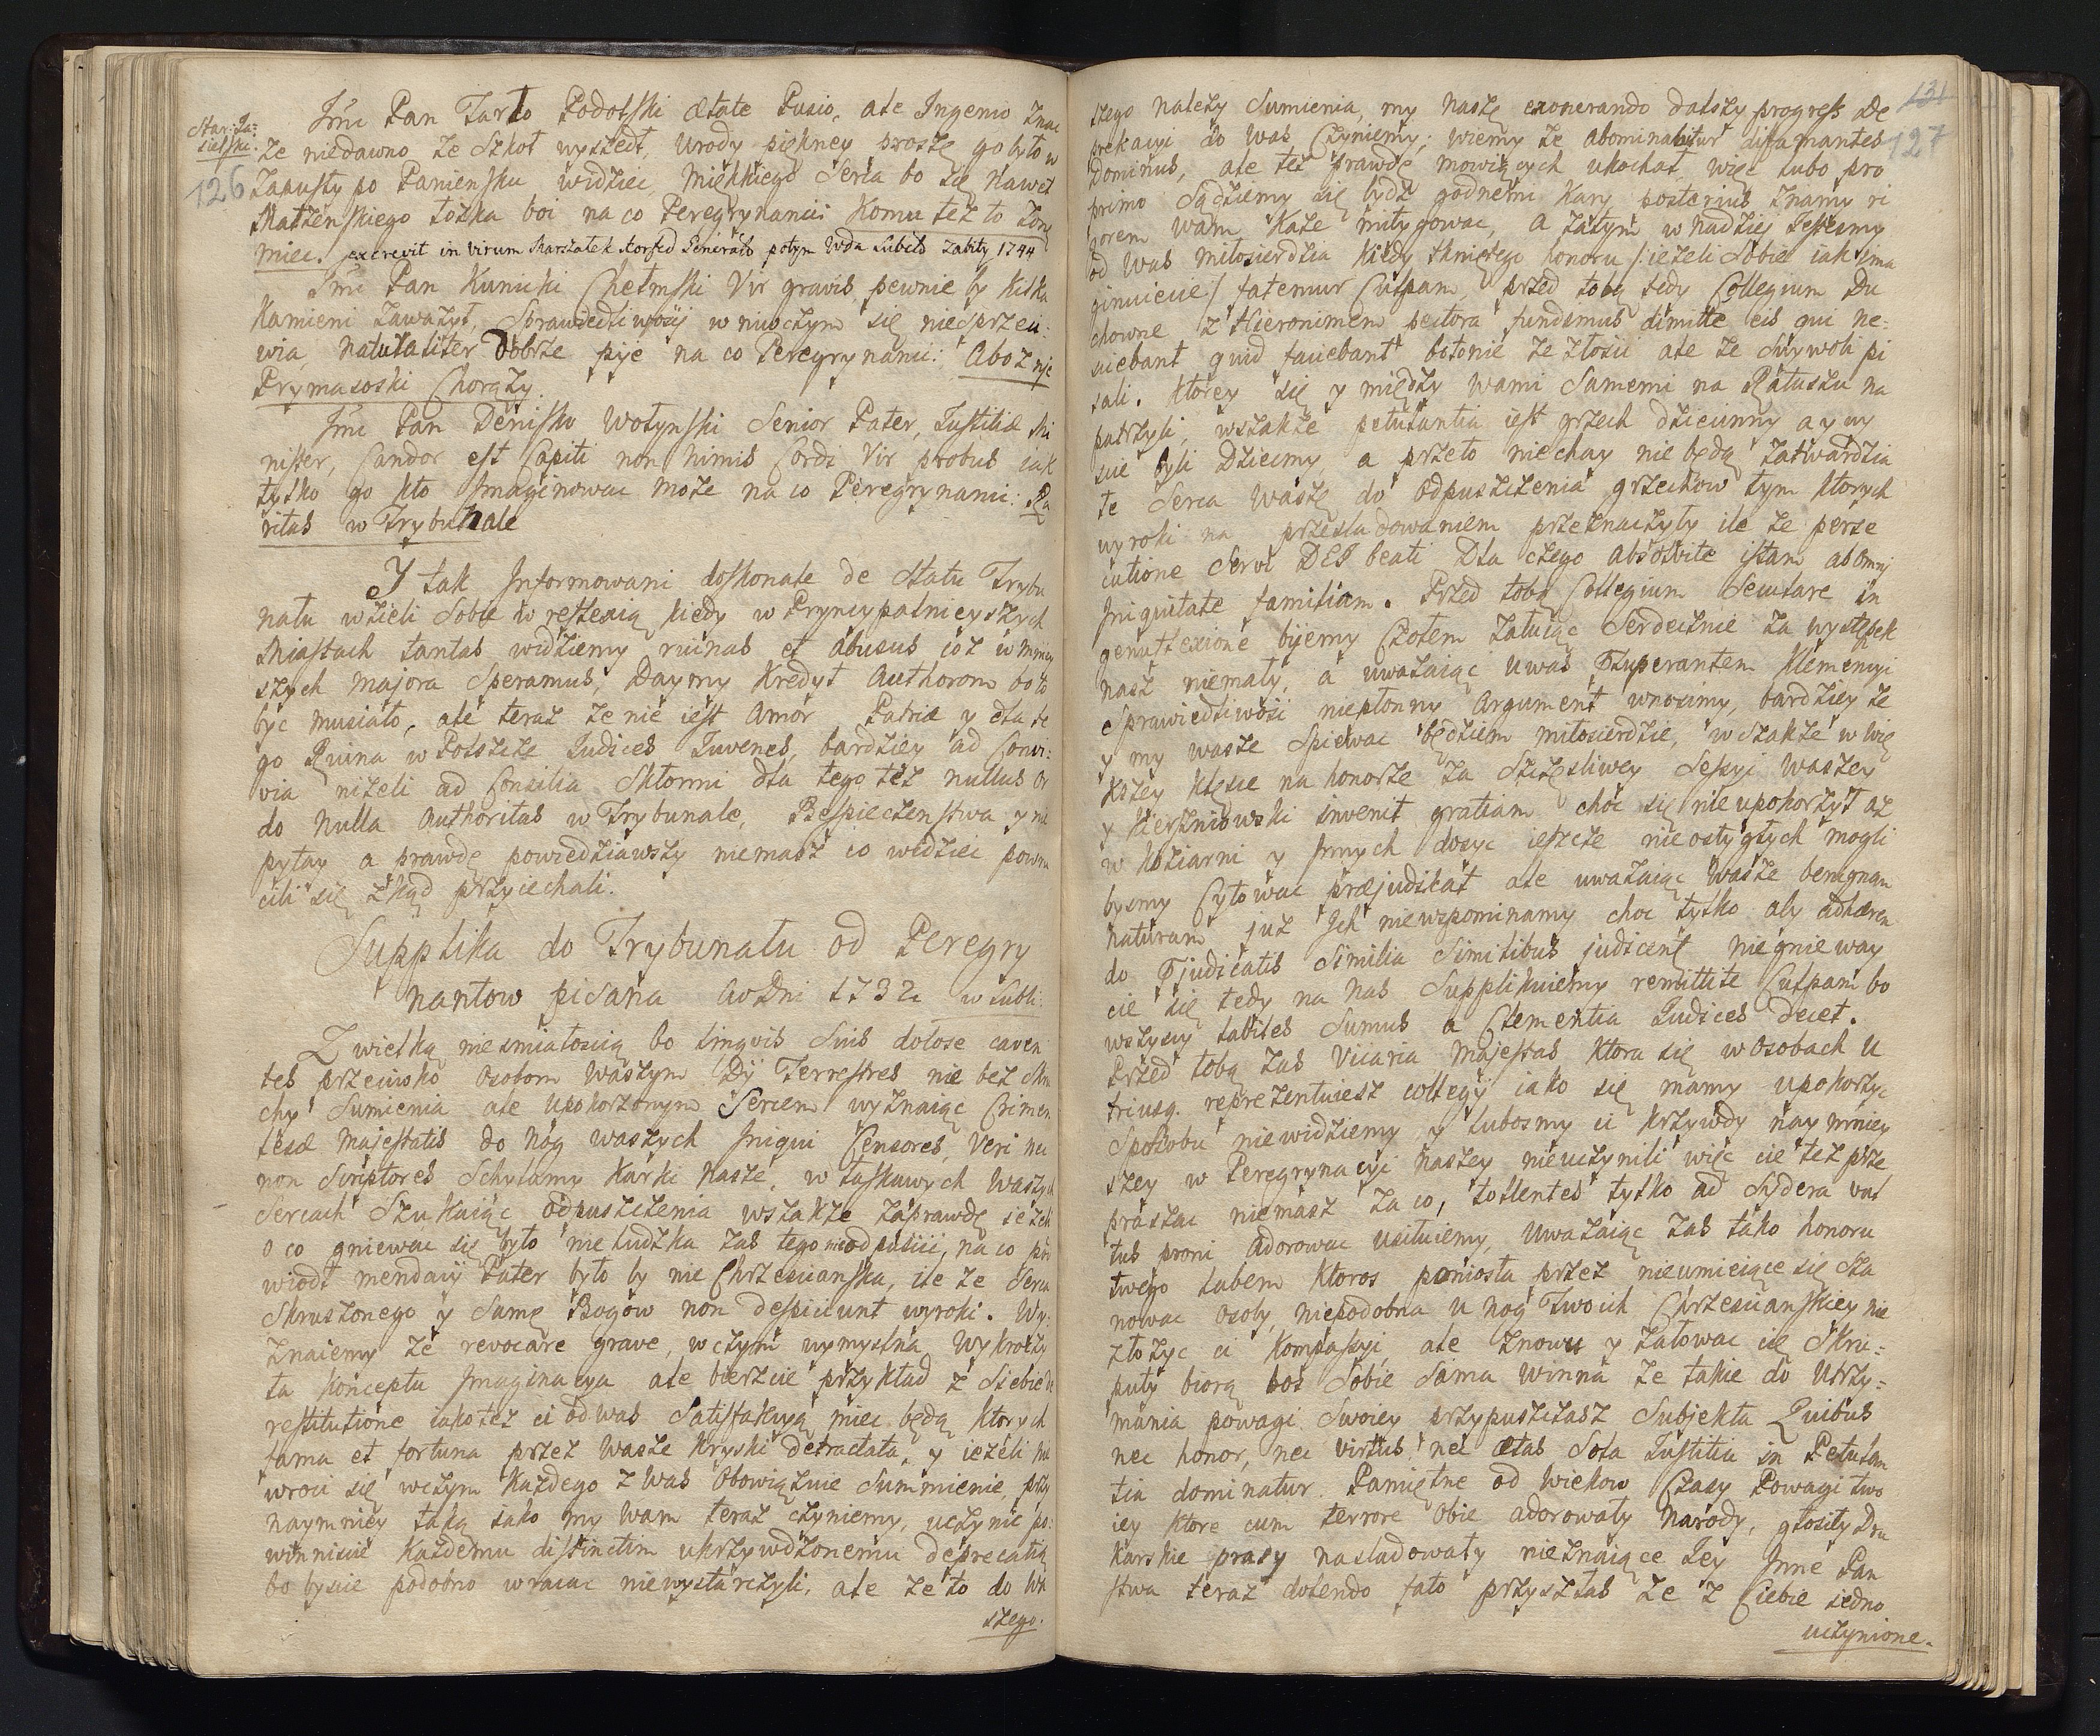 Star: Ja:
sielski.
126
Jmć Pan Tarło Podolski ætate Pusio, ale Ingenio znac
że niedawno ze Szkoł wyszedł, urody piękney proszę go było w
Zapusty po Paniensku widziec, miękkiego Serca bo się nawet
Małżenskiego łożka boi na co Peregrynanci: Komu też to żonę
miec. excrevit in virum Marszałek Konfed Generału potym Wda Lubels zabity 1744
Jmć Pan Kunicki Chełmski Vir gravis pewnie by kilka
Kamieni zaważył, Sprawiedliwosci w niwczym się niesprzeci-
wia, naturaliter dobrze pije na co Peregrynanci: Aboż nje
Prymasoski Chorąży.
Jmć Pan Denisko Wołynski Senior Pater, Justitiæ Mi
nister, Candor est Capiti non nimis Cordi Vir probus iak
tylko go kto Imaginowac może na co Peregrynanci: Ra
ritas w Trybunale
I tak Informowani doskonale de Statu Trybu
nału wzieli Sobie w reflexią kiedy w Pryncypalnieyszych
Miastach tantas widziemy ruinas et abusus coż w mniey
szych majora Speramus, Daymy Kredyt Authorom bo to
byc musiało, ale teraz że nie iest Amor Patriæ y dla te
go Ruina w Polszcze Judices Juvenes, bardziey ad Convi-
via niżeli ad Consilia Skłonni dla tego też nullus Or
do Nulla Authoritas w Trybunale, Bespieczenstwa y nie
pytay a prawdę powiedziawszy niemasz co widziec powro
cili się zkąd przyiechali.
Supplika do Trybunału od Peregry
nantow pisana Ao Dni 1732 w Lubli:
Z wielką niesmiałoscią bo linguis Suis dolose caven
tes przeciwko Osobom Waszym Dij Terrestres nie bez Skru
chy Sumienia ale upokorzonym Sercem wyznaiąc Crimen
læsæ Majestatis do nog waszych Iniqui Censores, Veri nec
non Scriptores Schylamy Karki Nasze, w łaskawych Waszych
Sercach Szukaiąc odpuszczenia wszakże zaprawdę ieżeli
o co gniewac się było nie ludzka zas tego nieodpuscic, na co przy
wiodł mendacij Pater było by nie Chrzescianska, ile że Serca
Skruszonego y Samę Bogow non despiciunt wyroki. Wy-
znaiemy że revocare grave, w czym wymyslna Wykroczy
ła Konceptu Imaginacya ale bierzcie przykład z Siebie de
restitutione iako też ci od was Satisfakcyą miec będą ktorych
fama et fortuna przez Wasze Kryski detractata, y ieżeli nie
wroci się wczym Każdego z Was Obowiązuie Summienie, przy
naymniey taką iako my Wam teraz czyniemy, uczynic po-
winniscie Każdemu distinctim ukrzywdzonemu deprecatią
bo byscie podobno wracac niewystarczyli, ale że to do Wa
szego.
131
127
szego należy Sumienia, my nasze exonerando dalszy progress de
prekacyi do was Czyniemy; wiemy że abominabitur difamantes
Dominus, ale też prawdę mowiących ukochał, więc lubo pro
primo Sądziemy się bydz godnemi Kary posterius znamy ri
gorem wam Każe mitygowac, a zatym w nadziei Jestesmy
od was miłosierdzia kiedy tkniętego honoru /:ieżeli Sobie iak ima
ginuiecie:/ fatemur Culpam, przed tobą tedy Collegium Du
chowne z Hieronimem pectora fundimus dimitte eis qui ne-
sciebant quid faciebant bo to nie ze złosci ale ze Swywoli pi
sali. Ktorey się y między wami Samemi na Ratuszu na
patrzyli, wszakże petulantia iest grzech dziecinny a y wy
scie byli Dziecmy, a przeto niechay nie będą zatwardzia
łe Serca wasze do odpuszczenia grzechow tym ktorych
wyroki na przesladowaniem przeznaczyły ile że perse
cutione Servi DEI beati Dla czego Absolvite istam ab Omnj
Iniquitate familiam. Przed tobą Collegium Seculare in
genuflexione bijemy Czołem żałuiąc Serdecznie za występek
nasz niemały, a uważaiąc u was Exuperantem Klemencyi
Sprawiedliwosci niepłonny Argument wnosimy, bardziey że
y my wasze Spiewac będziem miłosierdzie, wszakże w wię
kszey klęsce na honorze za Szczęsliwey Sessyi waszey
y Kierzniowski invenit gratiam choc się nie upokorzył aż
w Koziarni y Innych dosyc ieszcze nieostygłych mogli
bysmy Cytowac præjudikat ale uważaiąc wasze benignam
naturam już Ich niewspominamy choc tylko aby adhæren
do Præjudicatis Similia Similibus judicent niegnieway
cie się tedy na nas Supplikuiemy remittite Culpam bo
wszyscy labiles Sumus a Clementia Judices decet.
Przed tobą zas Vicaria Majestas ktora się w Osobach U
triusq. reprezentuiesz collegij iako się mamy upokorzyc
Sposobu niewidziemy y lubosmy ci krzywdy naymniey
szey w Peregrynacyi naszey nieuczynili więc cie też prze
praszac niemasz za co, tollentes tylko ad Sydera vul
tus proni Adorowac usiłuiemy, Uważaiąc zas taką honoru
twego labem ktoros poniosła przez nieumieiące się Sza
nowac Osoby, niepodobna u nog Twoich Chrzescianskiey nie
złożyc ci Kompassyi ale znowu y żałowac cię Skru-
puły biorą bos Sobie Sama Winna że takie do Utrzy-
mania powagi Swoiey przypuszczasz Subjekta Quibus
nec honor, nec virtus, nec ætas Sola Justitia in Petulan
tia dominatur. Pamiętne od wiekow Czasy Powagi two
iey ktore cum terrore Obie adorowały Narody, głosiły Dru
karskie prasy nasladowały nieznaiące Iey Inne Pan
stwa teraz dolendo fato przyszłas że z Ciebie iedno
uczynione.